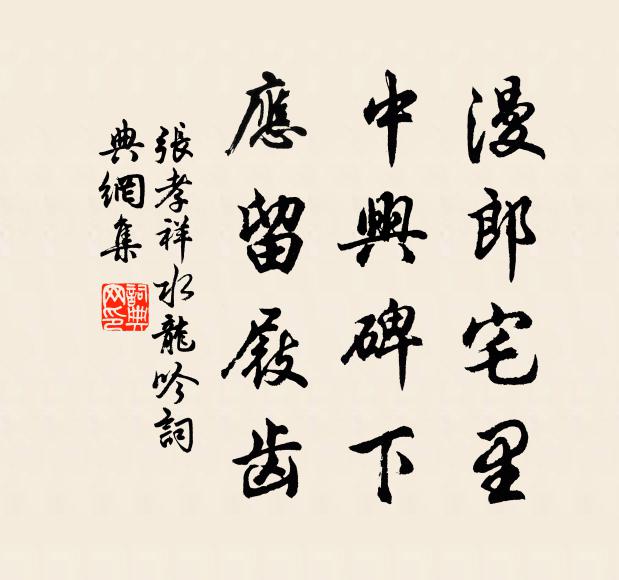 漫郎宅里
中興碑下
應留屐齒
張孝祥水龍吟詞
典網集
詞典网印